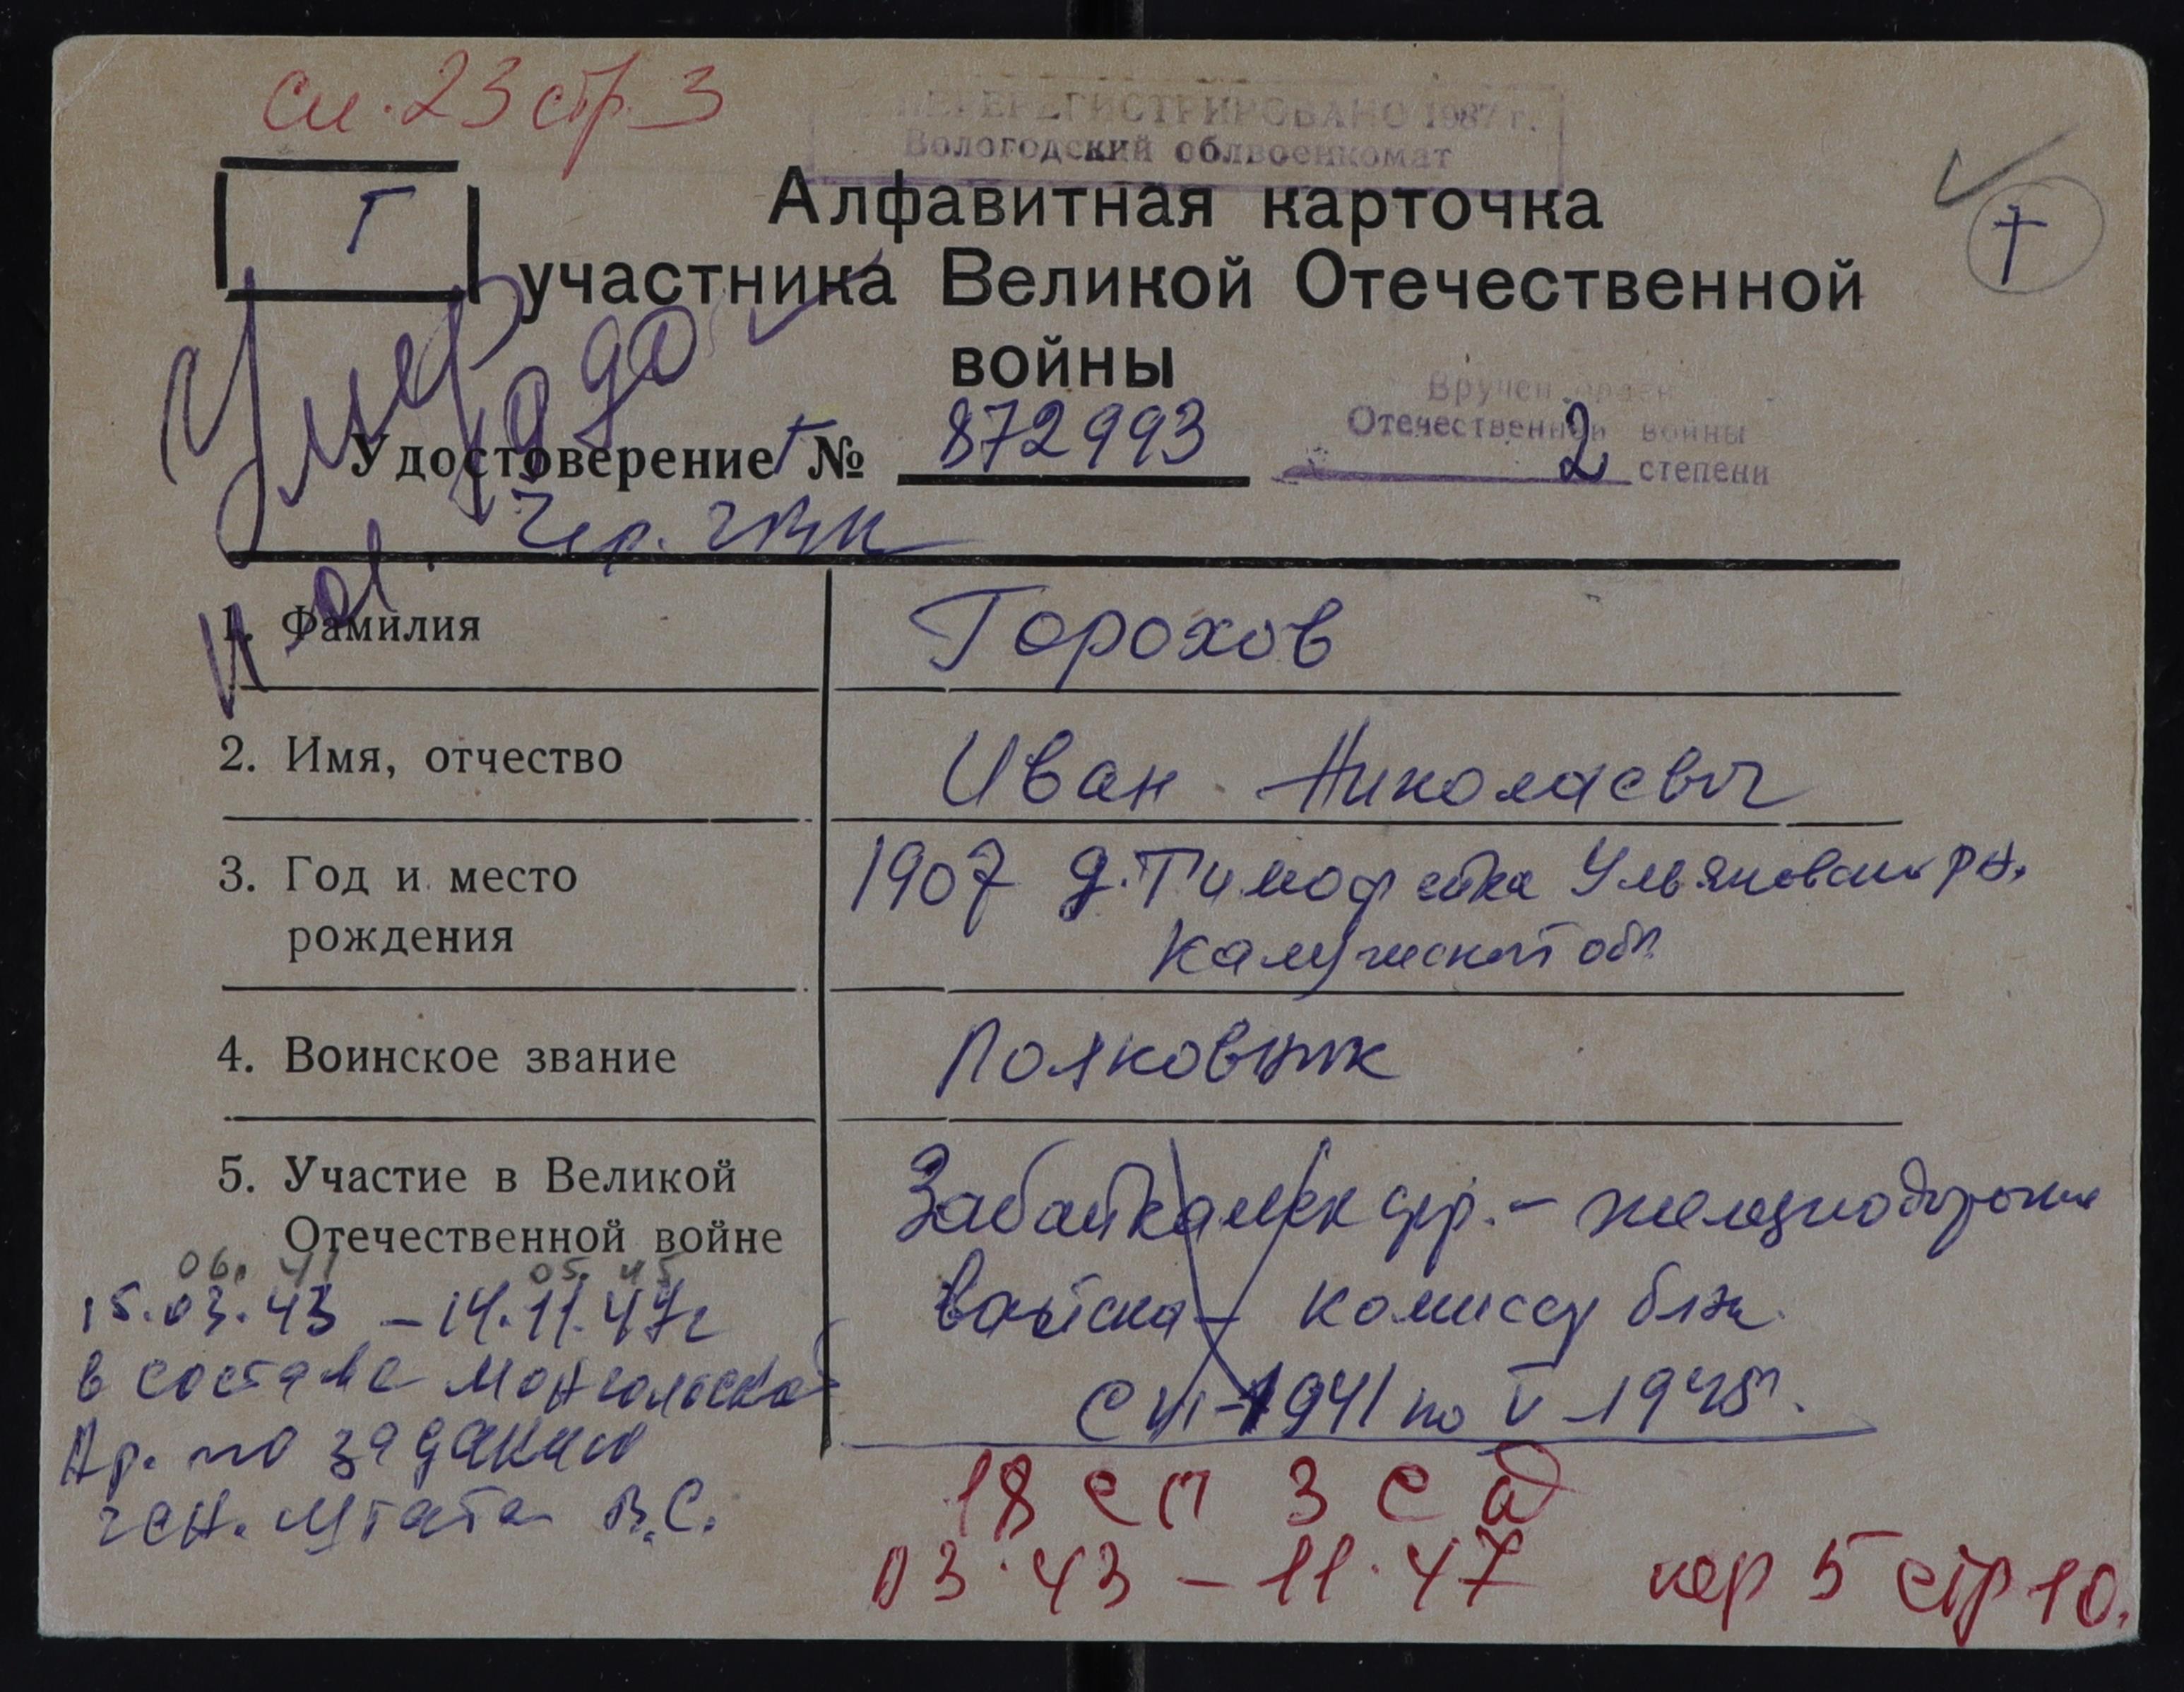 сп. 23 стр. 3
ПЕРЕРЕГИСТРИРОВАНО 1987 г.
Вологодский облвоенкомат
Г
Алфавитная карточка
участника Великой Отечественной
войны
Умер
Вручен орден
Отечественной войны
2 степени
Удостоверение Г № 872993
Чер. ГВК
1. Фамилия
Горохов
2. Имя, отчество
Иван Николаевич
3. Год и место
рождения
1907 д. Тимофеевка Ульяновск рн.
Калужской обл.
4. Воинское звание
Полковник
5. Участие в Великой
Отечественной войне
Забайкальск фр. - железнодорожн
войска - комиссар бж.
с VI-1941 по V-1945г.
06. 41 05. 45
15.03.43 - 14.11.47г
в составе Монгольской
Ар. по заданию
ген. штаба В.С.
18 сп 3 сд
03.43 - 11.47 кор 5 стр 10.